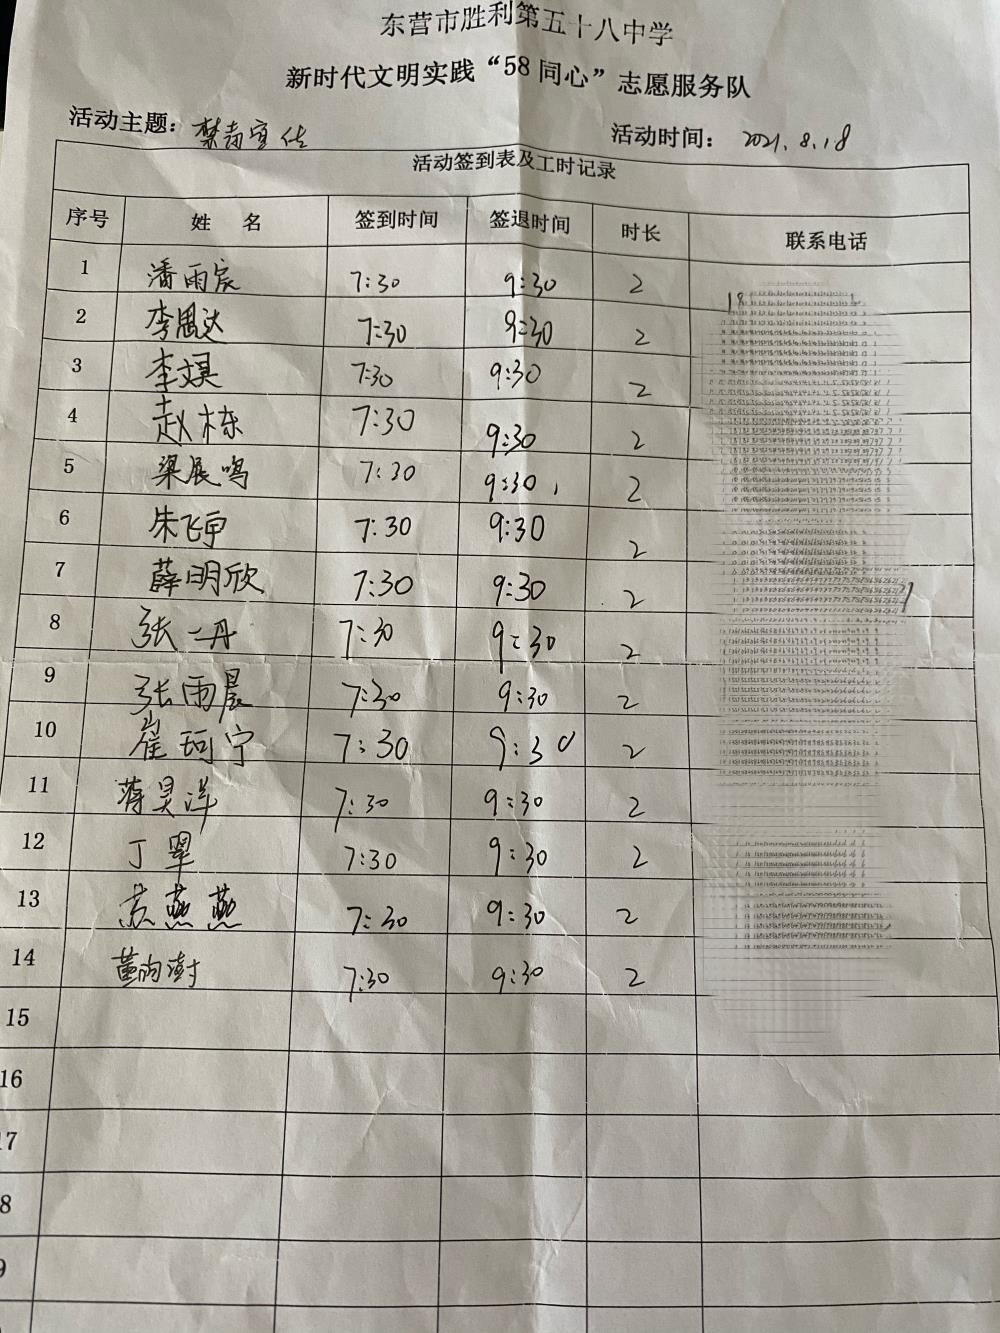 东营市胜利第五十八中学
新时代文明实践“58同心”志愿服务队
活动主题：禁毒宣传 活动时间：2021.8.18
活动签到表及工时记录
序号 姓名 签到时间 签退时间 时长 联系电话
1 潘雨宸 7:30 9:30 2
2 李思达 7:30 9:30 2
3 李淇 7:30 9:30 2
4 赵栋 7:30 9:30 2
5 梁展鸣 7:30 9:30 2
6 朱飞宇 7:30 9:30 2
7 薛明欣 7:30 9:30 2
8 张一丹 7:30 9:30 2
9 张雨晨 7:30 9:30 2
10 崔珂宁 7:30 9:30 2
11 蒋昊洋 7:30 9:30 2
12 丁翠 7:30 9:30 2
13 袁燕燕 7:30 9:30 2
14 董 7:30 9:30 2
15
16
17
8
9